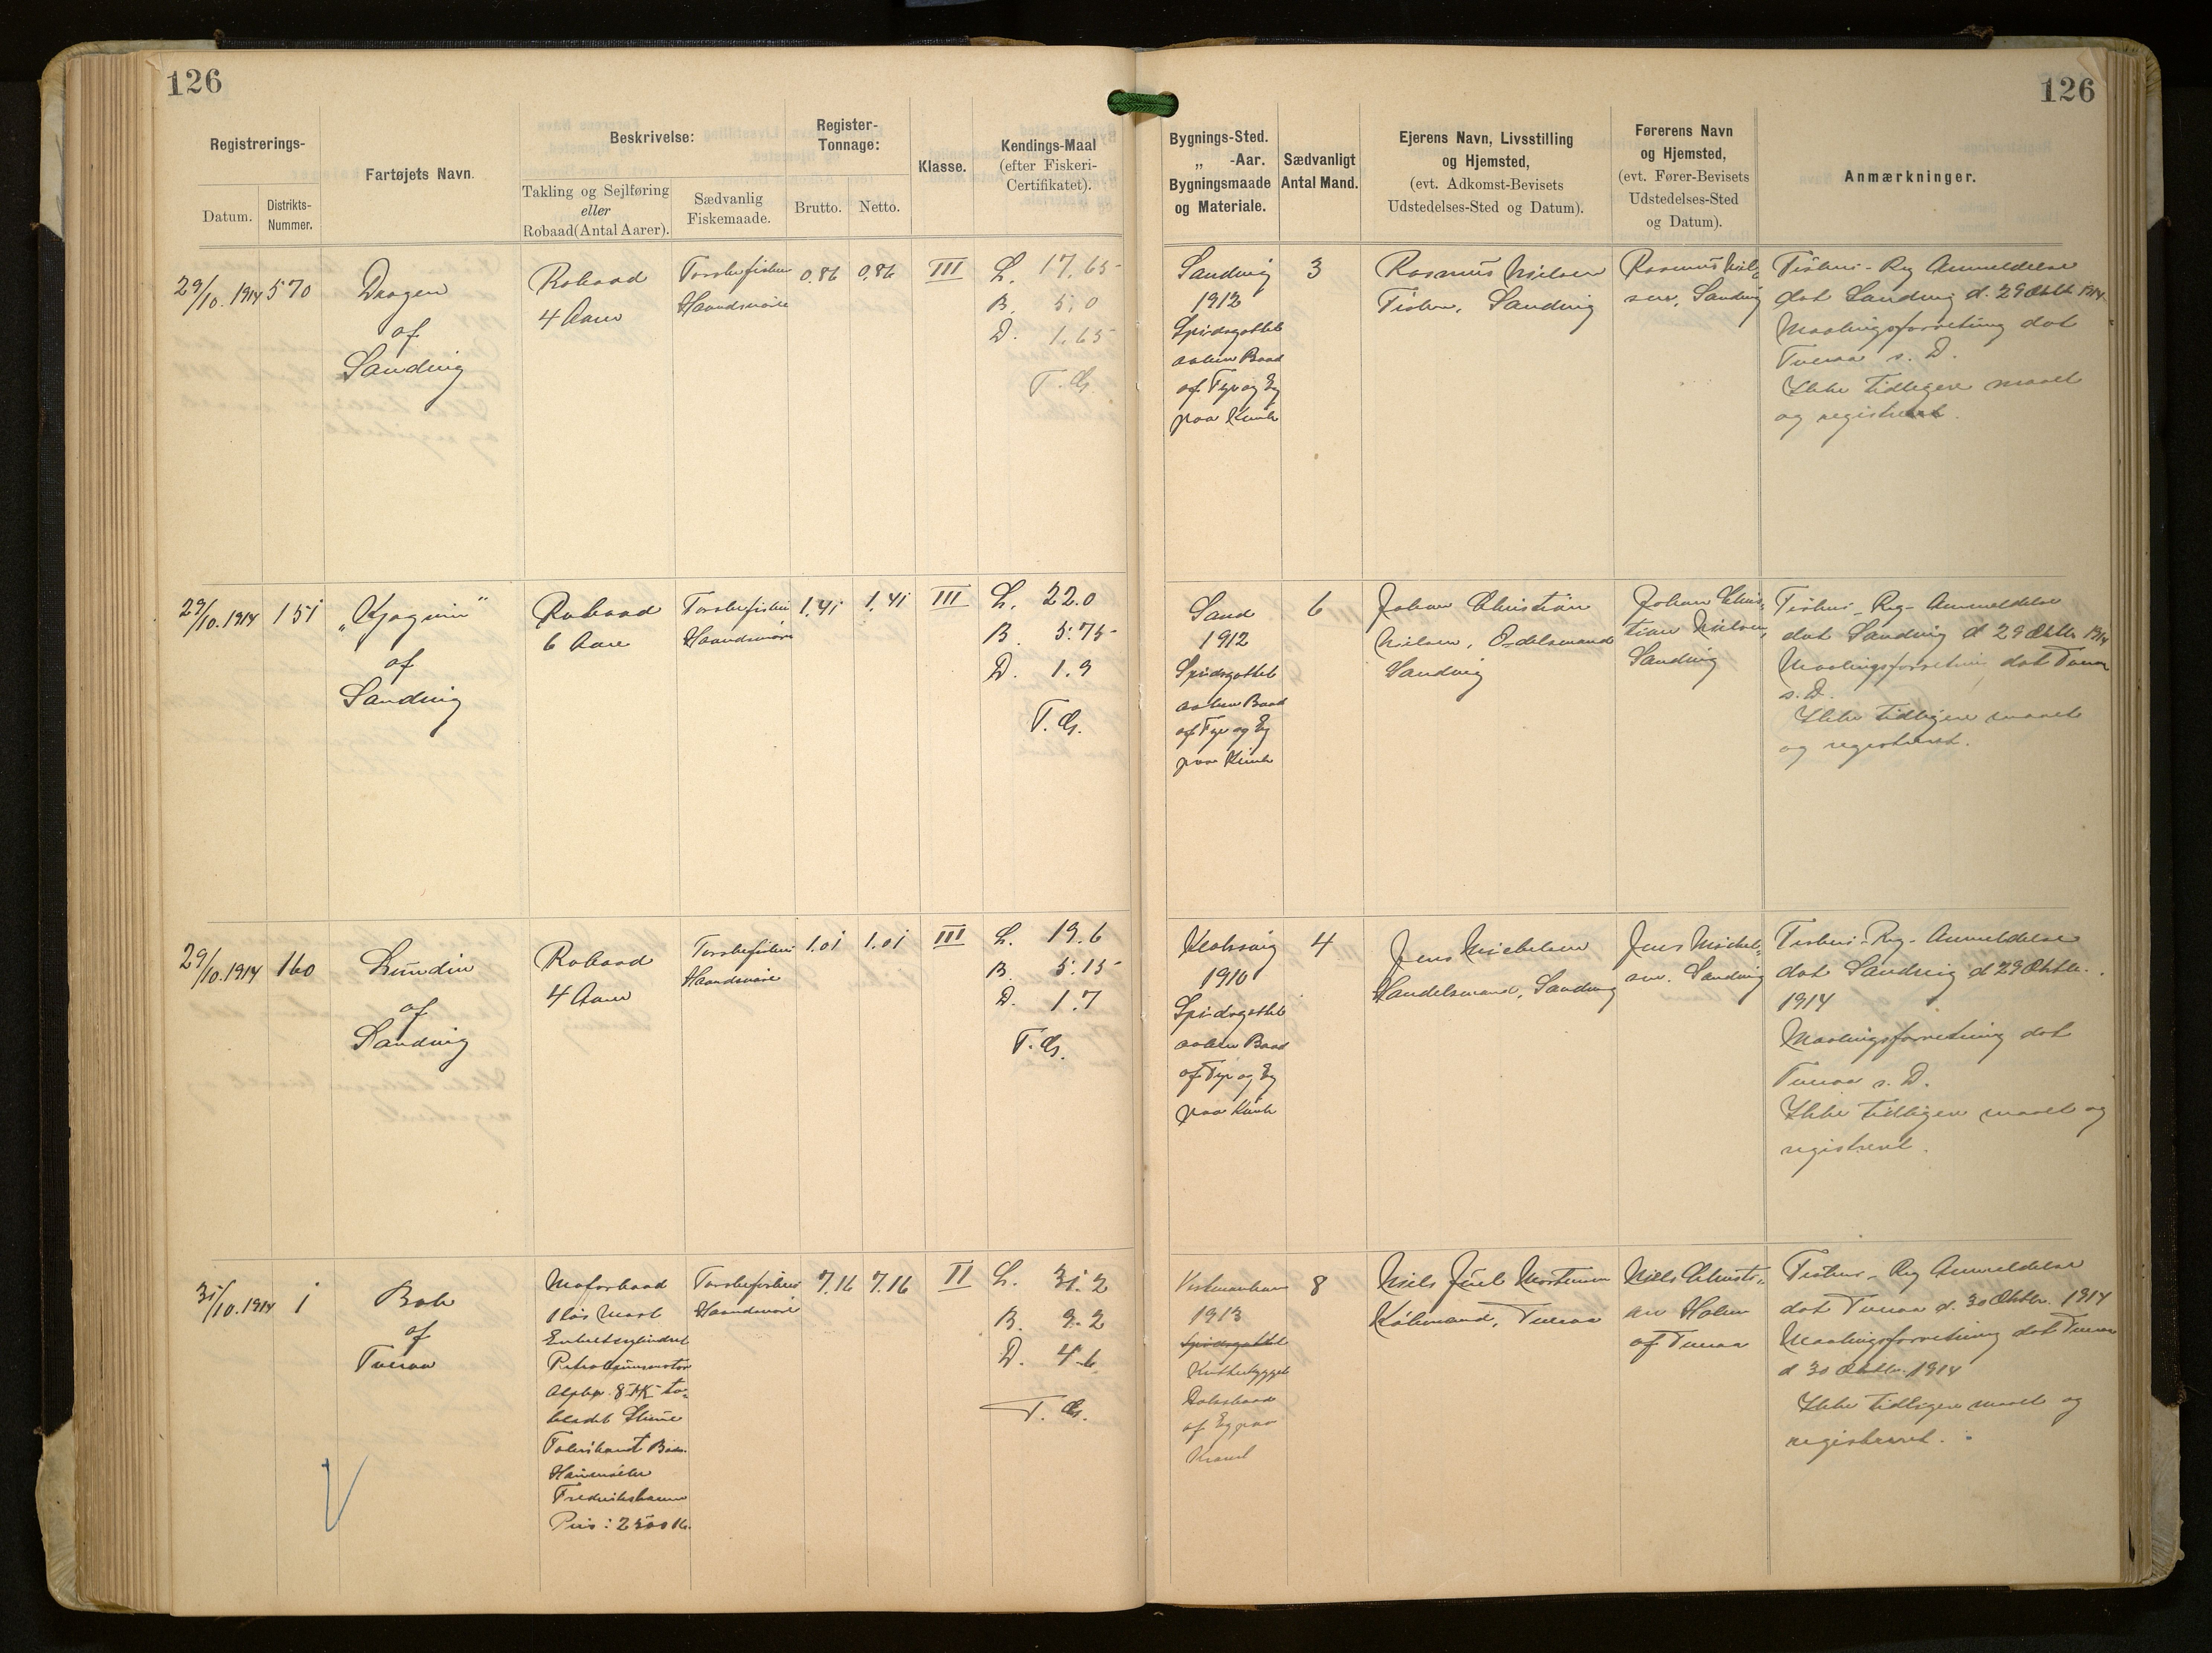 126
126
Registrerings-
Datum.
Distrikts-
Nummer.
Fartøjets Navn.
Beskrivelse:
Takling og Sejlføring
eller
Robaad (Antal Aarer).
Sædvanlig
Fiskemaade.
Register-
Tonnage:
Brutto.
Netto.
Klasse.
Kendings-Maal
(efter Fiskeri-
Certifikatet).
Bygnings-Sted.
„ -Aar.
Bygningsmaade
og Materiale.
Sædvanligt
Antal Mand.
Ejerens Navn, Livsstilling
og Hjemsted,
(evt. Adkomst-Bevisets
Udstedelses-Sted og Datum).
Førerens Navn
og Hjemsted,
(evt. Fører-Bevisets
Udstedelses-Sted
og Datum).
Anmærkninger.
29/10. 1914
570
Dragen
af
Sandvig
Robaad
4 Aarer
Torskefiskeri
Haandsnøre
0,86
0,86
III
L. 17.65
B. 5.0
D. 1.65
T. G.
Sandvig
1912
Spidsgattet
aaben Baad
af Fyr og Eg
paa Klink
3
Rasmus Nielsen
Fisker, Sandvig
Rasmus Niel-
sen, Sandvig
Fiskeri-Reg Anmeldelse
dat Sandvig d. 29 Oktbr. 1914
Maalingsforretning dat
Tveraa s. D.
Ikke tidligere maalt
og registreret.
29/10. 1914
151
„Kjagvin"
af
Sandvig
Robaad
6 Aare
Torskefiskeri
Haandsnøre
1,41
1,41
III
L. 22.0
B. 5.75
D. 1.9
T. G.
Sand
1912
Spidsgattet
aaben Baad
af Fyr og Eg
paa Klink
6
Johan Christian
Nielsen, Odelsmand
Sandvig
Johan Chris-
tian Nielsen,
Sandvig
Fiskeri-Reg-Anmeldelse
dat Sandvig d 29 Oktbr. 1914
Maalingsforretning dat Tveraa
s. D.
Ikke tidligere maalt
og registreret.
29/10. 1914
160
Lundin
af
Sandvig
Robaad
4 Aarer
Torskefiskeri
Haandsnøre
1.01
1.01
III
L. 19.6
B. 5.15
D. 1.7
T. G.
Klaksvig
1910
Spidsgattet
aaben Baad
af Fyr og Eg
paa Klink
4
Jens Michelsen
Handelsmand, Sandvig
Jens Michel-
sen. Sandvig
Fiskeri-Reg-Anmeldelse
dat Sandvig d 29 Oktbr.
1914
Maalingsforretning dat
Tveraa s. D.
Ikke tidligere maalt og
registreret.
31/10. 1914
1
af
Tveraa
Motorbaad
1 løs Mast
Enkeltcylindret
Petroleumsmotor
Alpha 8 HK to-
bladet Skrue
Fabrikant Brdr.
Houmøller
Frederikshavn
Pris: 2500 Kr.
Torskefiskeri
Haandsnøre
7.16
7.16
II
L. 31.2
B. 9.2
D. 4.6
T. G.
Vestmanhavn
1913
Spidsgattet
Kutterbygget
Dæksbaad
af Eg paa
Kravel
8
Niels Juel Mortensen
Købmand, Tveraa
Niels Christi-
an Holm
af Tveraa
Fiskeri-Reg Anmeldelse
dat Tveraa d. 30 Oktbr. 1914
Maalingsforretning dat Tveraa
d 30 Oktbr. 1914
Ikke tidligere maalt og
registreret.